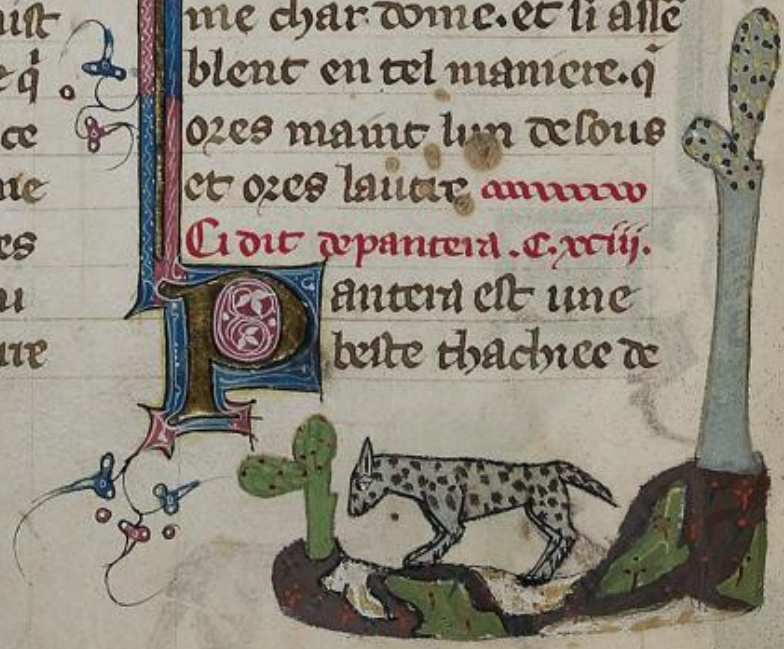 uist
e q̄
ce
me
es
u
ure
me char dome. et si asse͂
blent en tel maniere. q̄
ores maint lun desous
et ores lautre
Ci dit de pantera .C. xciii.
Pantera est une
beste thachiee de